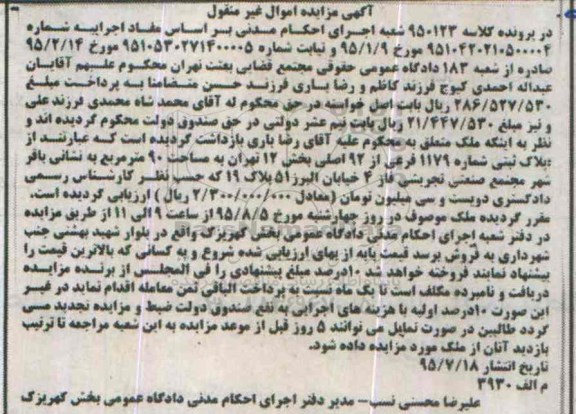 آگهی مزایده اموال غیر منقول
در پرونده کلاسه ۹۵۰۱۲۳ شعبه اجرای احکام مدنی بر اساس مفاد اجراییه شماره
۹۵۱۰۴۲۰۲۱۰۵۰۰۰۰۴ مورخ ۹۵/۱/۹ و نیابت شماره ۹۵۱۰۵۳۰۲۷۱۴۰۰۰۰۵ مورخ ۹۵/۲/۱۴
صادره از شعبه ۱۸۳ دادگاه عمومی حقوقی مجتمع قضایی بعثت تهران محکوم علیهم آقایان
عبداله احمدی کیوج فرزند کاظم و رضا یاری فرزند حسن متضامنا به پرداخت مبلغ
۲۸۶/۵۲۷/۵۳۰ ریال بابت اصل خواسته در حق محکوم له آقای محمد شاه محمدی فرزند علی
و نیز مبلغ ۲۱/۴۴۷/۵۳۰ ریال بابت نیم عشر دولتی در حق صندوق دولت محکوم گردیده اند و
نظر به اینکه ملک متعلق به محکوم علیه آقای رضا یاری بازداشت گردیده است که عبارتند از
:پلاک ثبتی شماره ۱۱۷۹ فرعی از ۹۲ اصلی بخش ۱۲ تهران به مساحت ۹۰ مترمربع به نشانی باقر
شهر مجتمع صنعتی تجریشی فاز ۴ خیابان البرز ۵۱ پلاک ۱۹ که حسب نظر کارشناس رسمی
دادگستری دویست و سی میلیون تومان (معادل ۲/۳۰۰/۰۰۰/۰۰۰ ریال) ارزیابی گردیده است.
مقرر گردیده ملک موصوف در روز چهارشنبه مورخ ۹۵/۸/۵ از ساعت ۹ الی ۱۱ از طریق مزایده
در دفتر شعبه اجرای احکام مدنی دادگاه عمومی بخش کهریزک واقع در بلوار شهید بهشتی جنب
شهرداری به فروش برسد قیمت پایه از بهای ارزیابی شده شروع و به کسانی که بالاترین قیمت را
پیشنهاد نمایند فروخته خواهد شد ۱۰درصد مبلغ پیشنهادی را فی المجلس از برنده مزایده
دریافت و نامبرده مکلف است تا یک ماه نسبت به پرداخت الباقی ثمن معامله اقدام نماید در غیر
این صورت ۱۰درصد اولیه با هزینه های اجرایی به نفع صندوق دولت ضبط و مزایده تجدید می
گردد طالبین در صورت تمایل می توانند ۵ روز قبل از موعد مزایده به این شعبه مراجعه تا ترتیب
بازدید آنان از ملک مورد مزایده داده شود.
تاریخ انتشار ۹۵/۷/۱۸
م الف ۳۹۳۰
علیرضا محسنی نسب- مدیر دفتر اجرای احکام مدنی دادگاه عمومی بخش کهریزک